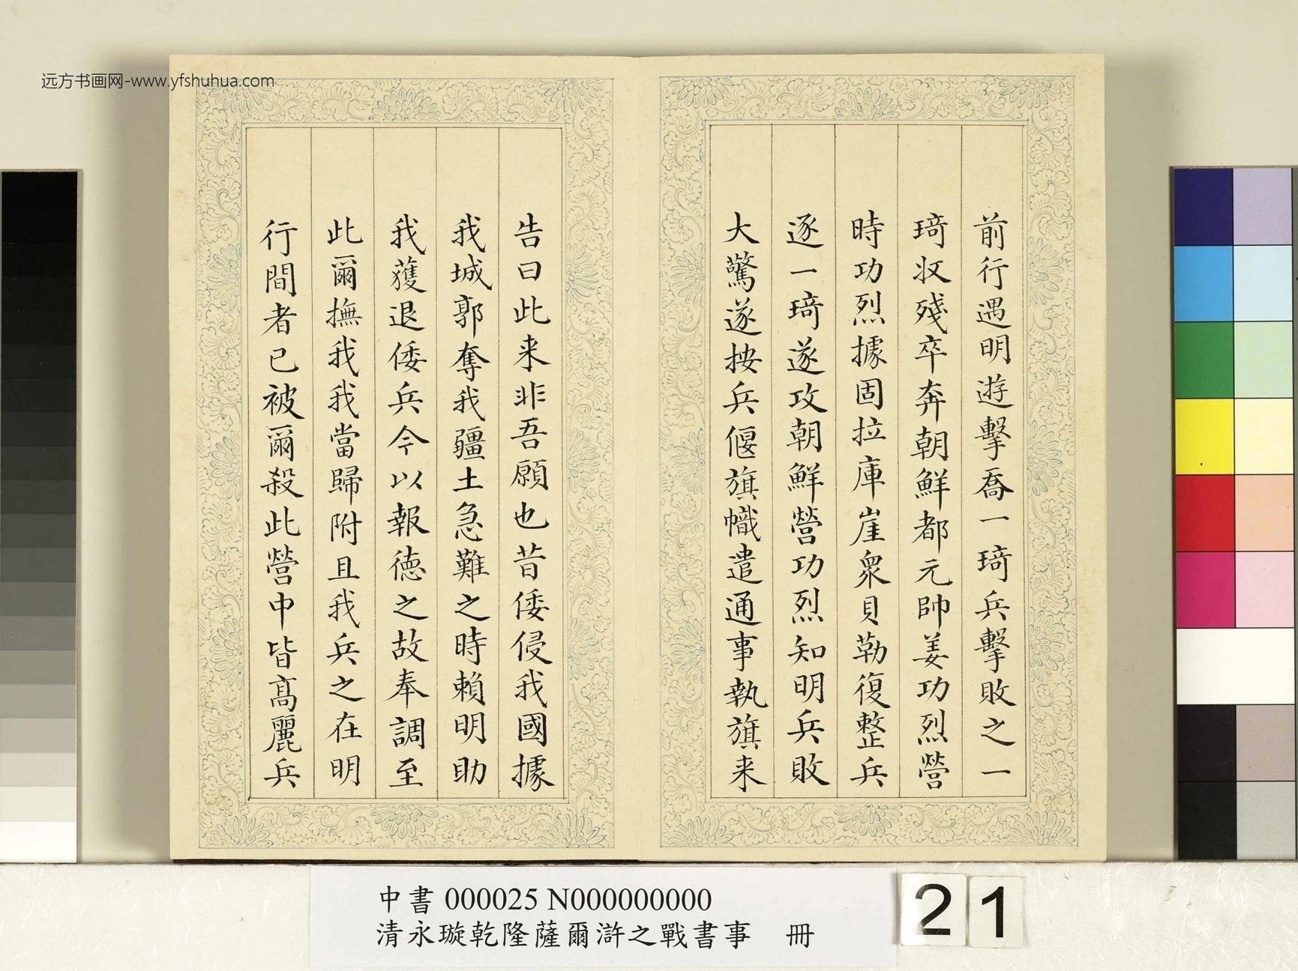 远方书画网-www.yfshuhua.com
前行遇明遊擊喬一琦兵擊敗之一
琦収殘卒奔朝鮮都元帥姜功烈營
時功烈據固拉庫崖衆貝勒復整兵
逐一琦遂攻朝鮮營功烈知明兵敗
大驚遂按兵偃旗幟遣通事執旗来
告曰此来非吾願也昔倭侵我國據
我城郭奪我疆土急難之時賴明助
我獲退倭兵今以報徳之故奉調至
此爾撫我我當歸附且我兵之在明
行間者已被爾殺此營中皆髙麗兵
中書 000025 N000000000
清永璇乾隆薩爾滸之戰書事 冊
21